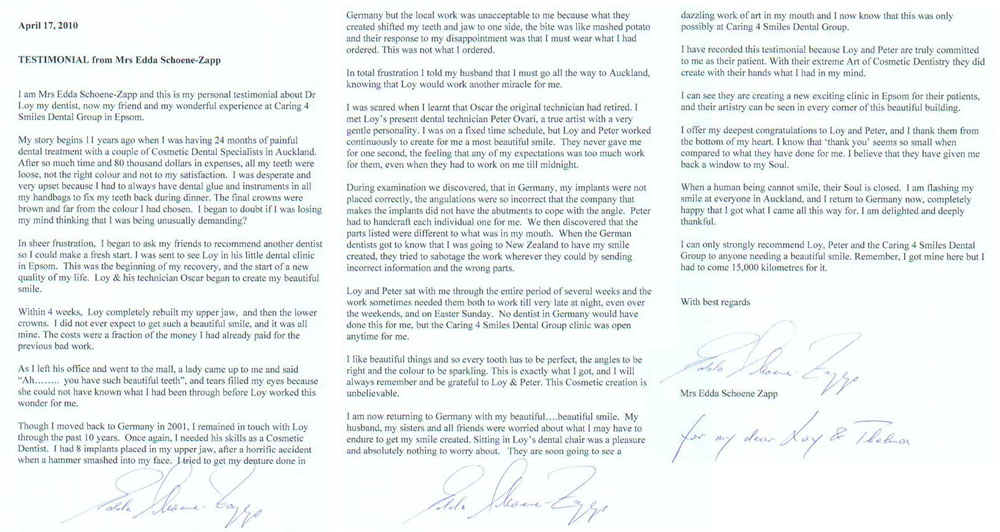 April 17, 2010
TESTIMONIAL from Mrs Edda Schoene-Zapp
I am Mrs Edda Schoene-Zapp and this is my personal testimonial about Dr
Loy my dentist, now my friend and my wonderful experience at Caring 4
Smiles Dental Group in Epsom.
My story begins 11 years ago when I was having 24 months of painful
dental treatment with a couple of Cosmetic Dental Specialists in Auckland.
After so much time and 80 thousand dollars in expenses, all my teeth were
loose, not the right colour and not to my satisfaction. I was desperate and
very upset because I had to always have dental glue and instruments in all
my handbags to fix my teeth back during dinner. The final crowns were
brown and far from the colour I had chosen. I began to doubt if I was losing
my mind thinking that I was being unusually demanding?
In sheer frustration, I began to ask my friends to recommend another dentist
so I could make a fresh start. I was sent to see Loy in his little dental clinic
in Epsom. This was the beginning of my recovery, and the start of a new
quality of my life. Loy & his technician Oscar began to create my beautiful
smile.
Within 4 weeks, Loy completely rebuilt my upper, and then the lower
crowns. I did not ever expect to get such a beautiful smile, and it was all
mine. The costs were a fraction of the money I had already paid for the
previous bad work.
As I left his office and went to the mall, a lady came up to me and said
“Ah…….. you have such beautiful teeth”, and tears filled my eyes because
she could not have known what I had been through before Loy worked this
wonder for me.
Though I moved back to Germany in 2001, I remained in touch with Loy
through the past 10 years. Once again, I needed his skills as a Cosmetic
Dentist. I had 8 implants placed in my upper jaw, after a horrific accident
when a hammer smashed into my face. I tried to get my denture done in
Edda Schoene-Zapp
Germany but the local work was unacceptable to me because what they
created shifted my teeth and jaw to one side, the bite was like mashed potato
and their response to my disappointment was that I must wear what I had
ordered. This was not what I ordered.
In total frustration I told my husband that I must go all the way to Auckland,
knowing that Loy would work another miracle for me.
I was scared when I learnt that Oscar the original technician had retired. I
met Loy's present dental technician Peter Ovari, a true artist with a very
gentle personality. I was on a fixed time schedule, but Loy and Peter worked
continuously to create for me a most beautiful smile. They never gave me
for one second, the feeling that any of my expectations was too much work
for them, even when they had to work on me till midnight.
During examination we discovered, that in Germany, my implants were not
placed correctly, the angulations were so incorrect that the company that
makes the implants did not have the abutments to cope with the angle. Peter
had to handcraft each individual one for me. We then discovered that the
parts listed were different to what was in my mouth. When the German
dentists got to know that I was going to New Zealand to have my smile
created, they tried to sabotage the work wherever they could by sending
incorrect information and the wrong parts.
Loy and Peter sat with me through the entire period of several weeks and the
work sometimes needed them both to work till very late at night, even over
the weekends, and on Easter Sunday. No dentist in Germany would have
done this for me, but the Caring 4 Smiles Dental Group clinic was open
anytime for me.
I like beautiful things and so every tooth has to be perfect, the angles to be
right and the colour to be sparkling. This is exactly what I got, and I will
always remember and be grateful to Loy & Peter. This Cosmetic creation is
unbelievable.
I am now returning to Germany with my beautiful….beautiful smile. My
husband, my sisters and all friends were worried about what I may have to
endure to get my smile created. Sitting in Loy's dental chair was a pleasure
and absolutely nothing to worry about. They are soon going to see a
Edda Schoene-Zapp
dazzling work of art in my mouth and I now know that this was only
possibly at Caring 4 Smiles Dental Group.
I have recorded this testimonial because Loy and Peter are truly committed
to me as their patient. With their extreme Art of Cosmetic Dentistry they did
create with their hands what I had in my mind.
I can see they are creating a new exciting clinic in Epsom for their patients,
and their artistry can be seen in every corner of this beautiful building.
I offer my deepest congratulations to Loy and Peter, and I thank them from
the bottom of my heart. I know that ‘thank you’ seems so small when
compared to what they have done for me. I believe that they have given me
back a window to my Soul.
When a human being cannot smile, their Soul is closed. I am flashing my
smile at everyone in Auckland, and I return to Germany now, completely
happy that I got what I came all this way for. I am delighted and deeply
thankful.
I can only strongly recommend Loy, Peter and the Caring 4 Smiles Dental
Group to anyone needing a beautiful smile. Remember, I got mine here but I
had to come 15,000 kilometres for it.
With best regards
Edda Schoene-Zapp
Mrs Edda Schoene Zapp
for my dear Loy & Thelma